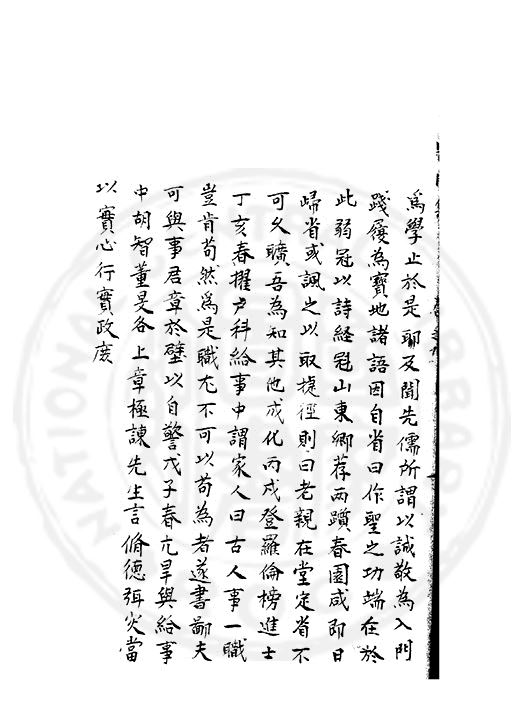 為學止於是耶及聞先儒所謂以誠敬為入門
踐履為實地諸語因自省曰作聖之功端在於
此弱冠以詩經冠山東鄉荐兩躓春闈咸即日
歸省或諷之以取捷徑則曰老親在堂定省不
可久曠吾為知其他成化丙戌登羅倫榜進士
丁亥春擢户科給事中謂家人曰古人事一職
豈肯苟然為是職尤不可以苟為者遂書鄙夫
可與事君章於壁以自警戊子春亢旱與給事
中胡智董旻各上章極諫先生言脩德弭灾當
以實心行實政庶